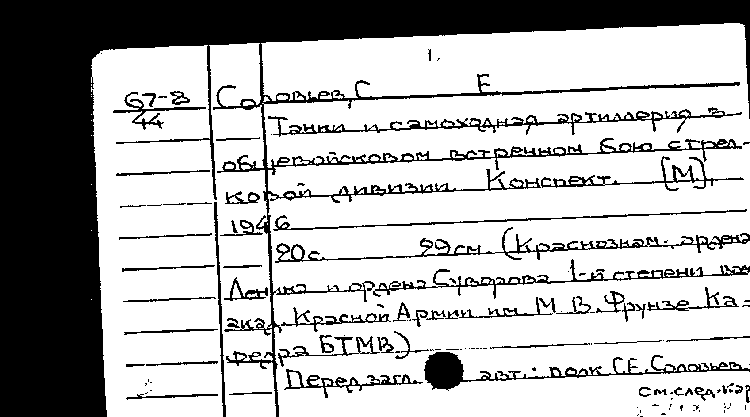 1.
67-8 Соловьев, С Е
44
Танки и самоходная артиллерия в
общевойсковом встречном бою стрел-
ковой дивизии. Конспект. [М],
1946
90с. 29см. (Краснознам. ордена
Ленина и ордена Суворова 1-й степени
акад. Красной Армии им. М В. Фрунзе Ка-
федра БТМВ)
Перед загл. авт.: полк С.Е. Соловьев.
см. след. кар